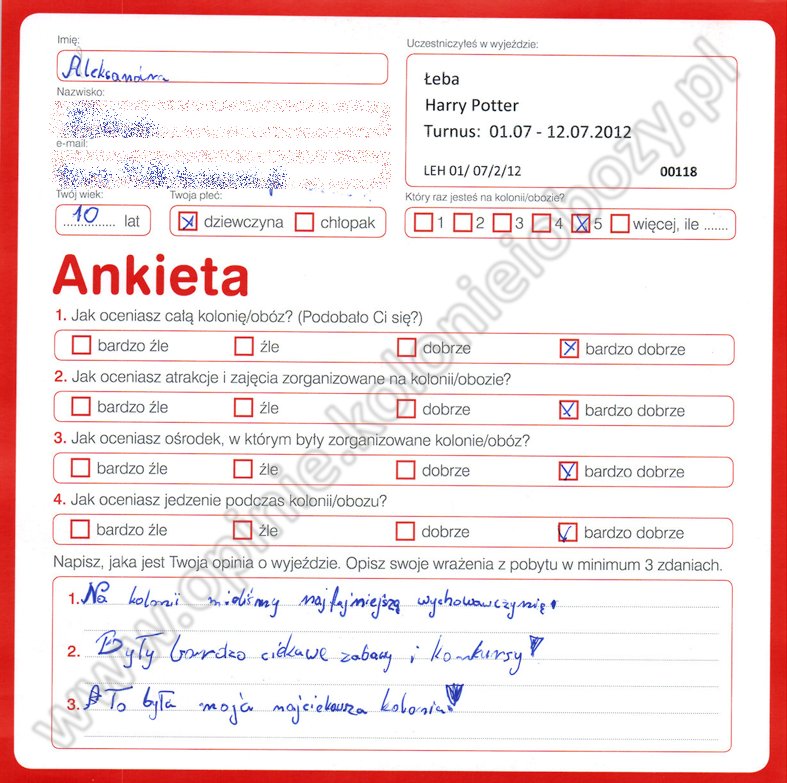 Imię:
Aleksandra
Nazwisko:
e-mail:
Twój wiek:
10 lat
Twoja płeć:
dziewczyna chłopak
Uczestniczyłeś w wyjeździe:
Łeba
Harry Potter
Turnus: 01.07 - 12.07.2012
LEH 01/ 07/2/12 00118
Który raz jesteś na kolonii/obozie?
1 2 3 4 5 więcej, ile .......
Ankieta
1. Jak oceniasz całą kolonię/obóz? (Podobało Ci się?)
bardzo źle źle dobrze bardzo dobrze
2. Jak oceniasz atrakcje i zajęcia zorganizowane na kolonii/obozie?
bardzo źle źle dobrze bardzo dobrze
3. Jak oceniasz ośrodek, w którym były zorganizowane kolonie/obóz?
bardzo źle źle dobrze bardzo dobrze
4. Jak oceniasz jedzenie podczas kolonii/obozu?
bardzo źle źle dobrze bardzo dobrze
Napisz, jaka jest Twoja opinia o wyjeździe. Opisz swoje wrażenia z pobytu w minimum 3 zdaniach.
1. Na kolonii mieliśmy najfajniejszą wychowawczynię.
2. Były bardzo ciekawe zabawy i konkursy!
3. To była moja najciekawsza kolonia!
www.opinie.kolonieiobozy.pl